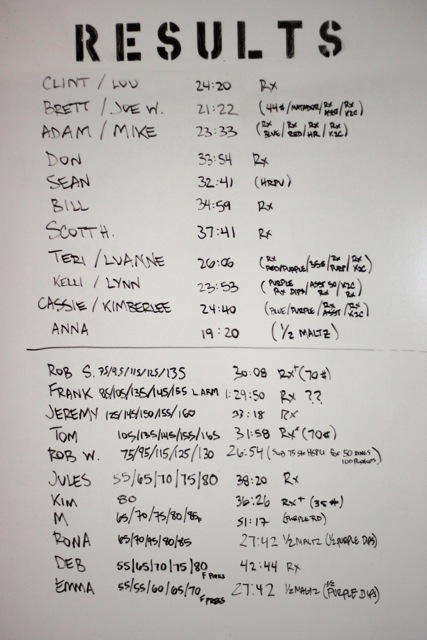 RESULTS
CLINT / LOU 24:20 Rx
BRETT / JOE W. 21:22 (44#/MATADOR/Rx ASST/Rx K2C)
ADAM / MIKE 23:33 (Rx BLUE/Rx RED/Rx HR/Rx K2C)
DON 33:54 Rx
SEAN 32:41 (HRPU)
BILL 34:59 Rx
SCOTT H. 37:41 Rx
TERI / LUANNE 26:06
KELLI / LYNN 23:53
CASSIE / KIMBERLEE 24:40 (BLUE/PURPLE/Rx ASST/Rx K2C)
ANNA 19:20 (1/2 MALTZ)
ROB S. 75/95/115/125/135 30:08 Rx+ (70#)
FRANK 85/105/135/145/155 1 ARM 1:29:50 Rx ??
JEREMY 125/145/150/155/160 Rx
TOM 105/135/145/155/165 31:58 Rx+ (70#)
ROB W. 75/95/115/125/130 26:54
JULES 55/65/70/75/80 38:20 Rx
KIM 80 36:26 Rx+ (35#)
M 65/70/75/80/85 51:17 (PURPLE RD)
RONA 65/70/75/80/85 27:42 1/2 MALTZ (1/2 PURPLE DIPS)
DEB 55/65/70/75/80 F PRESS 42:44 Rx
EMMA 55/55/60/65/70 F PRESS 27:42 1/2 MALTZ (1/2 PURPLE DIPS)